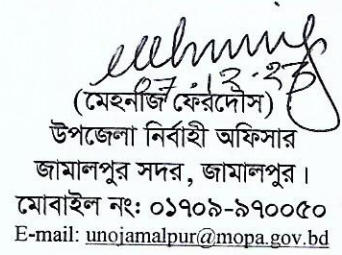 (মেহনাজ ফেরদৌস)
উপজেলা নির্বাহী অফিসার
জামালপুর সদর, জামালপুর।
মোবাইল নং: ০১৭০৯-৯৭০০৫০
E-mail: unojamalpur@mopa.gov.bd